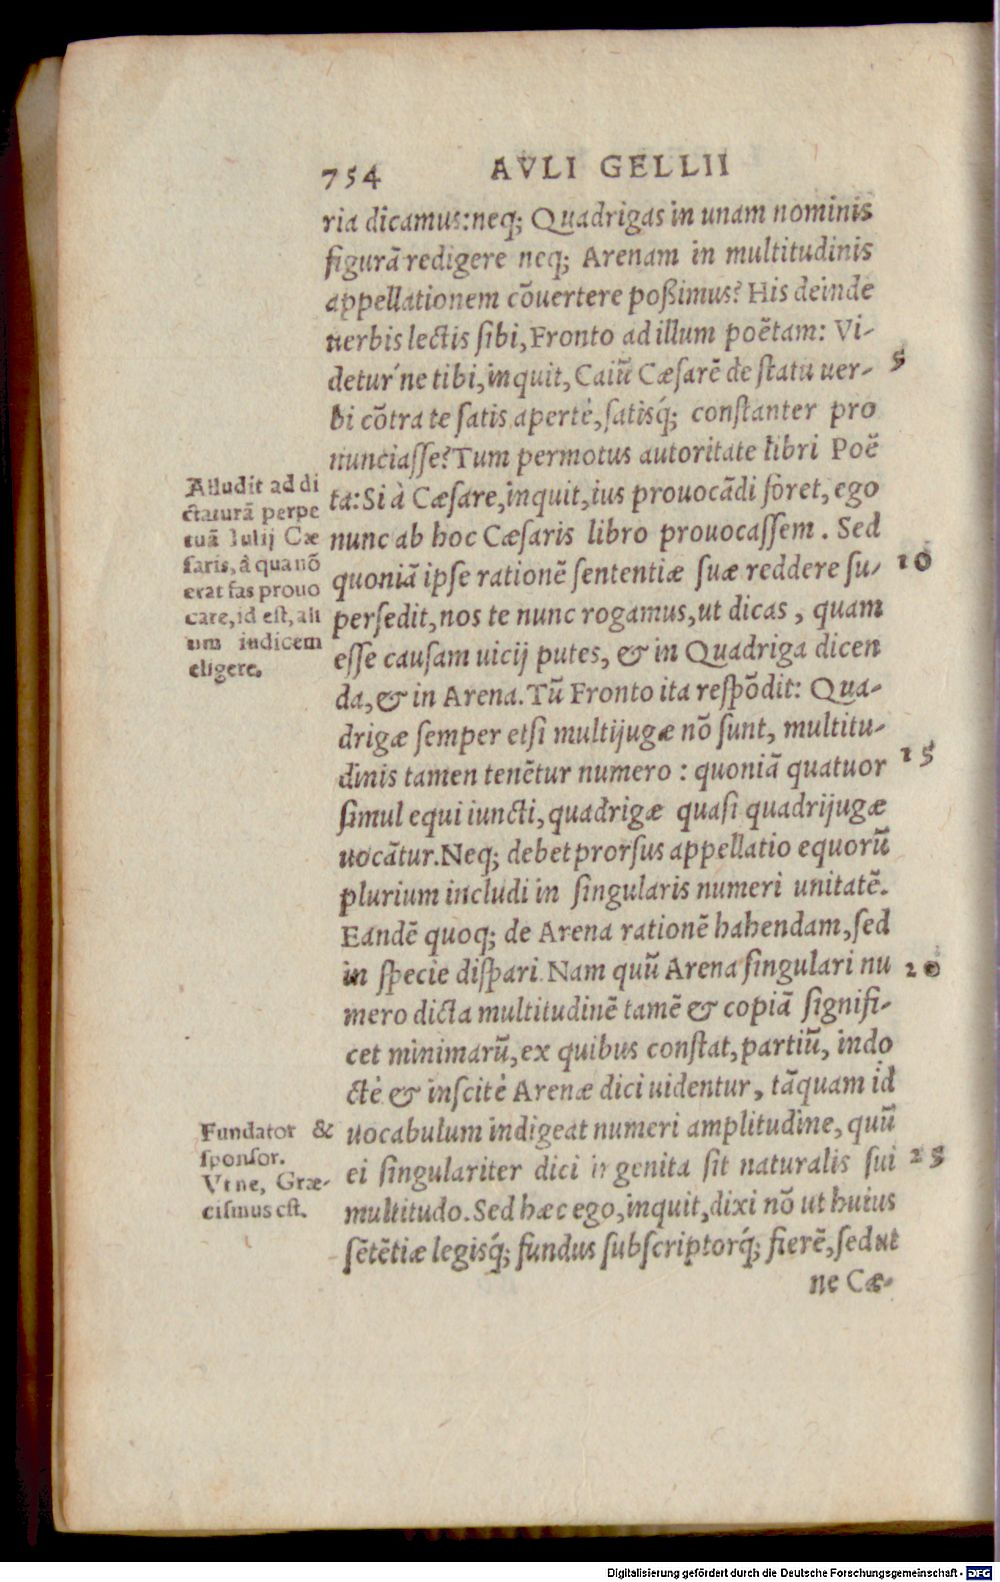 754 AVLI GELLII
ria dicamus: neq; Quadrigas in unam nominis
figurã redigere neq; Arenam in multitudinis
appellationem cõuertere poßimus? His deinde
uerbis lectis sibi, Fronto ad illum poëtam: Vi-
detur'ne tibi, inquit, Caiũ Cæsarẽ de statu uer- 5
bi cõtra te satis apertè, satisq́; constanter pro
nunciasse? Tum permotus autoritate libri Poë
ta: Si à Cæsare, inquit, ius prouocãdi foret, ego
nunc ab hoc Cæsaris libro prouocassem. Sed
quoniã ipse rationẽ sententiæ suæ reddere su- 10
persedit, nos te nunc rogamus, ut dicas, quam
esse causam uicij putes, & in Quadriga dicen
da, & in Arena. Tũ Fronto ita respõdit: Qua-
drigæ semper etsi multijugæ nõ sunt, multitu-
dinis tamen tenẽtur numero: quoniã quatuor 15
simul equi iuncti, quadrigæ quasi quadrijugæ
uocãtur. Neq; debet prorsus appellatio equorũ
plurium includi in singularis numeri unitatẽ.
Eandẽ quoq; de Arena rationẽ habendam, sed
in specie dispari. Nam quũ Arena singulari nu 20
mero dicta multitudinẽ tamẽ & copiã signifi-
cet minimarũ, ex quibus constat, partiũ, indo
ctè & inscitè Arenæ dici uidentur, tãquam id
uocabulum indigeat numeri amplitudine, quũ
ei singulariter dici ingenita sit naturalis sui 25
multitudo. Sed hæc ego, inquit, dixi nõ ut huius
sẽtẽtiæ legisq́; fundus subscriptorq́; fierẽ, sed ut
ne Cæ-
Alludit ad di
ctaturã perpe
tuã Iulij Cæ
saris, à qua nõ
erat fas prouo
care, id est, ali
um iudicem
eligere.
Fundator &
sponsor.
Vt ne, Græ-
cismus est.
Digitalisierung gefördert durch die Deutsche Forschungsgemeinschaft - DFG